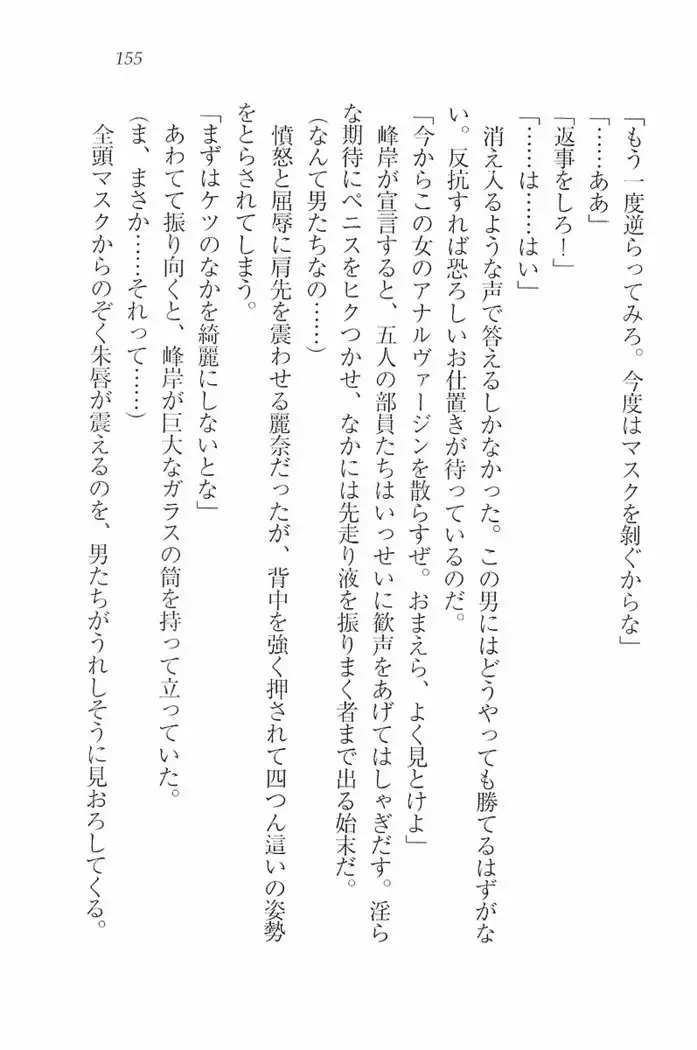 155
「もう一度逆らってみろ。今度はマスクを剝ぐからな」
「……ああ」
「返事をしろ！」
「……は……はい」
消え入るような声で答えるしかなかった。この男にはどうやっても勝てるはずがな
い。反抗すれば恐ろしいお仕置きが待っているのだ。
「今からこの女のアナルヴァージンを散らすぜ。おまえら、よく見とけよ」
峰岸が宣言すると、五人の部員たちはいっせいに歓声をあげてはしゃぎだす。淫ら
な期待にペニスをヒクつかせ、なかには先走り液を振りまく者まで出る始末だ。
（なんて男たちなの……）
憤怒と屈辱に肩先を震わせる麗奈だったが、背中を強く押されて四つん這いの姿勢
をとらされてしまう。
「まずはケツのなかを綺麗にしないとな」
あわてて振り向くと、峰岸が巨大なガラスの筒を持って立っていた。
（ま、まさか……それって……）
全頭マスクからのぞく朱唇が震えるのを、男たちがうれしそうに見おろしてくる。